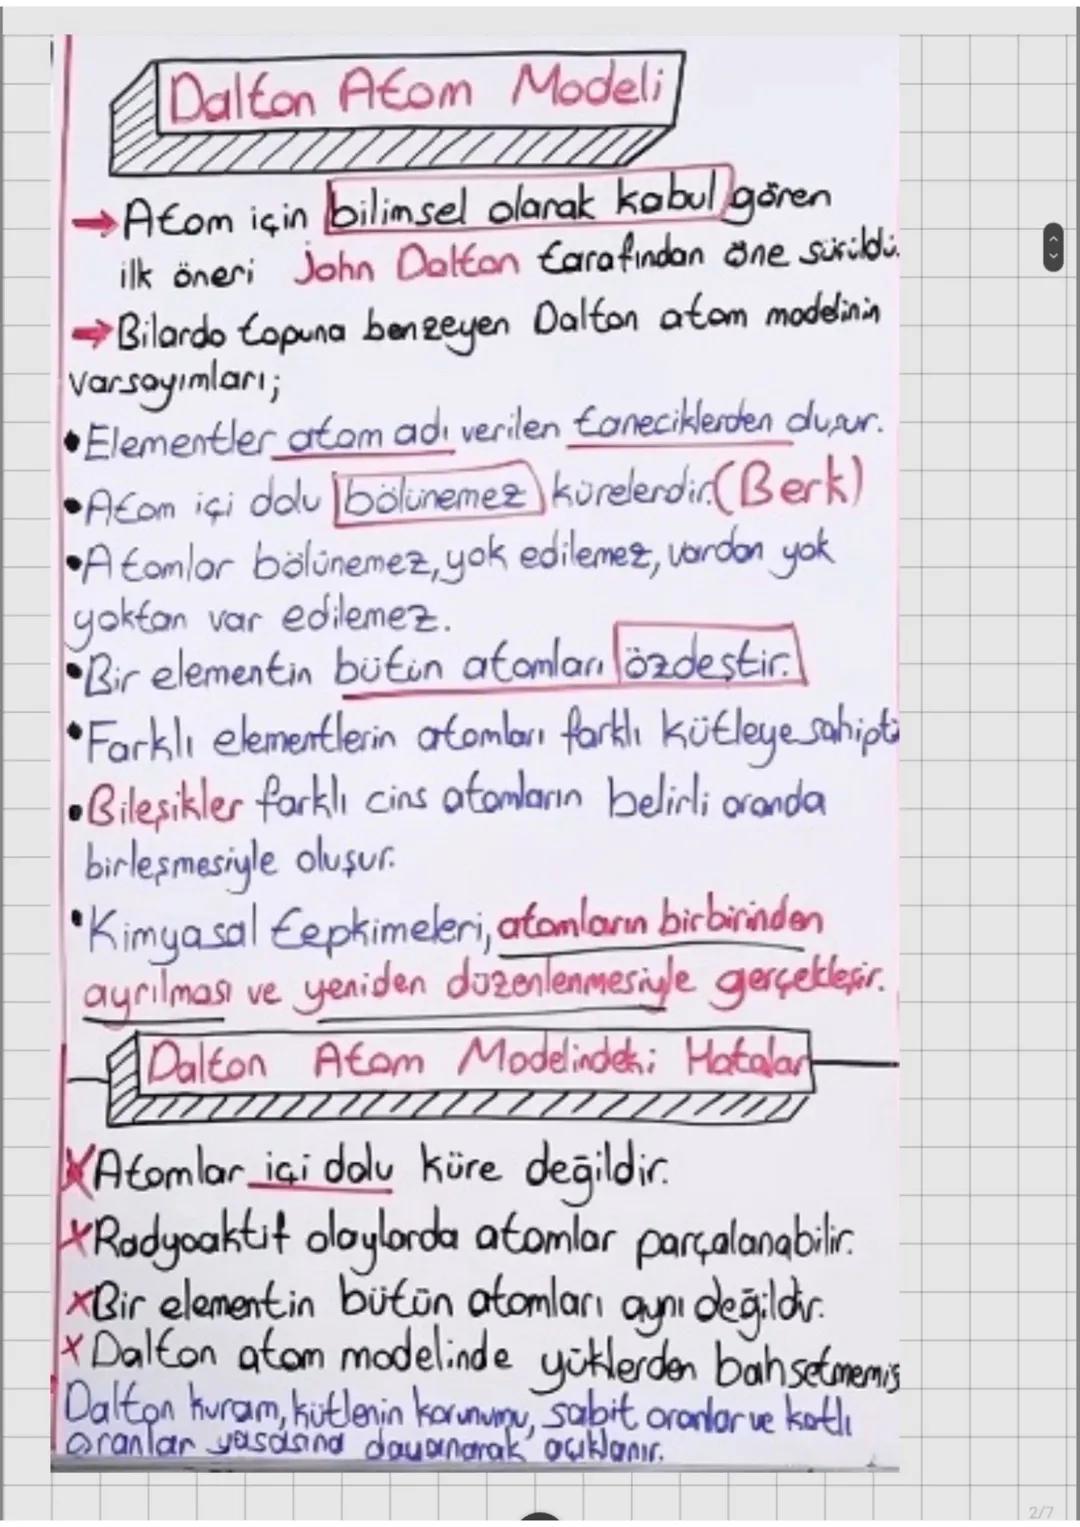 Dalton Atom Modeli
→ Atom için bilimsel olarak kabul gören
ilk öneri John Dalton tarafından öne sürüldü.
→ Bilardo topuna benzeyen Dalton atom modelinin
varsayımları;
• Elementler atom adı verilen taneciklerden oluşur.
• Atom içi dolu bölünemez kürelerdir. (Berk)
• Atomlar bölünemez, yok edilemez, vardan yok
yoktan var edilemez.
• Bir elementin bütün atomları özdeştir.
• Farklı elementlerin atomları farklı kütleye sahipti
• Bileşikler farklı cins atomların belirli oranda
birleşmesiyle oluşur.
• Kimyasal tepkimeleri, atomların birbirinden
ayrılması ve yeniden düzenlenmesiyle gerçekleşir.
Dalton Atom Modelindeki Hatalar
X Atomlar içi dolu küre değildir.
X Radyoaktif olaylarda atomlar parçalanabilir.
X Bir elementin bütün atomları aynı değildir.
X Dalton atom modelinde yüklerden bahsetmemiş
Dalton kuramı, kütlenin korunumu, sabit oranlar ve katlı
oranlar yasasına dayanarak açıklanır.
2/7